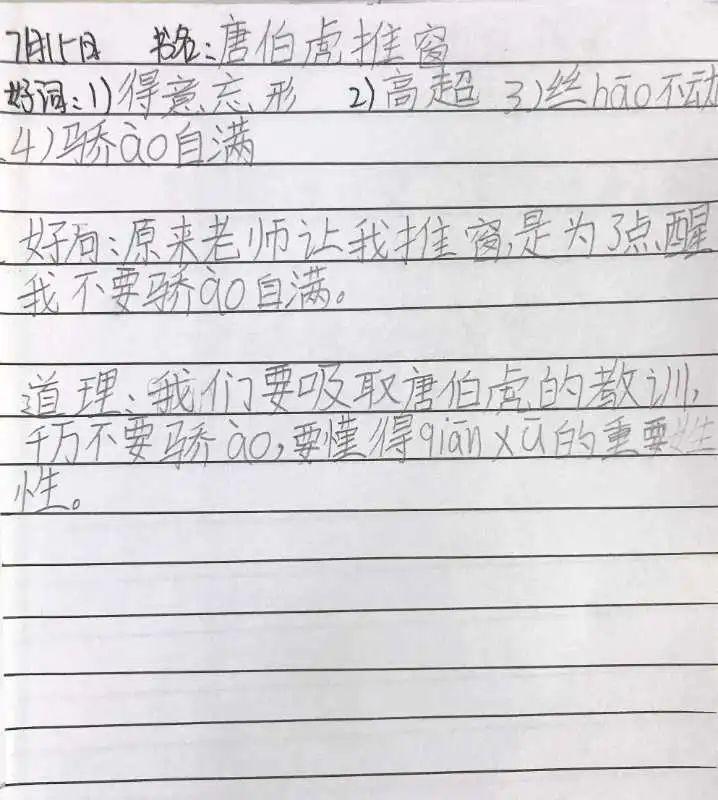 7月15日 书名:唐伯虎推窗
好词:1)得意忘形 2)高超 3)丝hāo不动
4)骄ào自满
好句:原来老师让我推窗,是为了点醒
我不要骄ào自满。
道理:我们要吸取唐伯虎的教训,
千万不要骄ào,要懂得qiān xū的重要性
性。